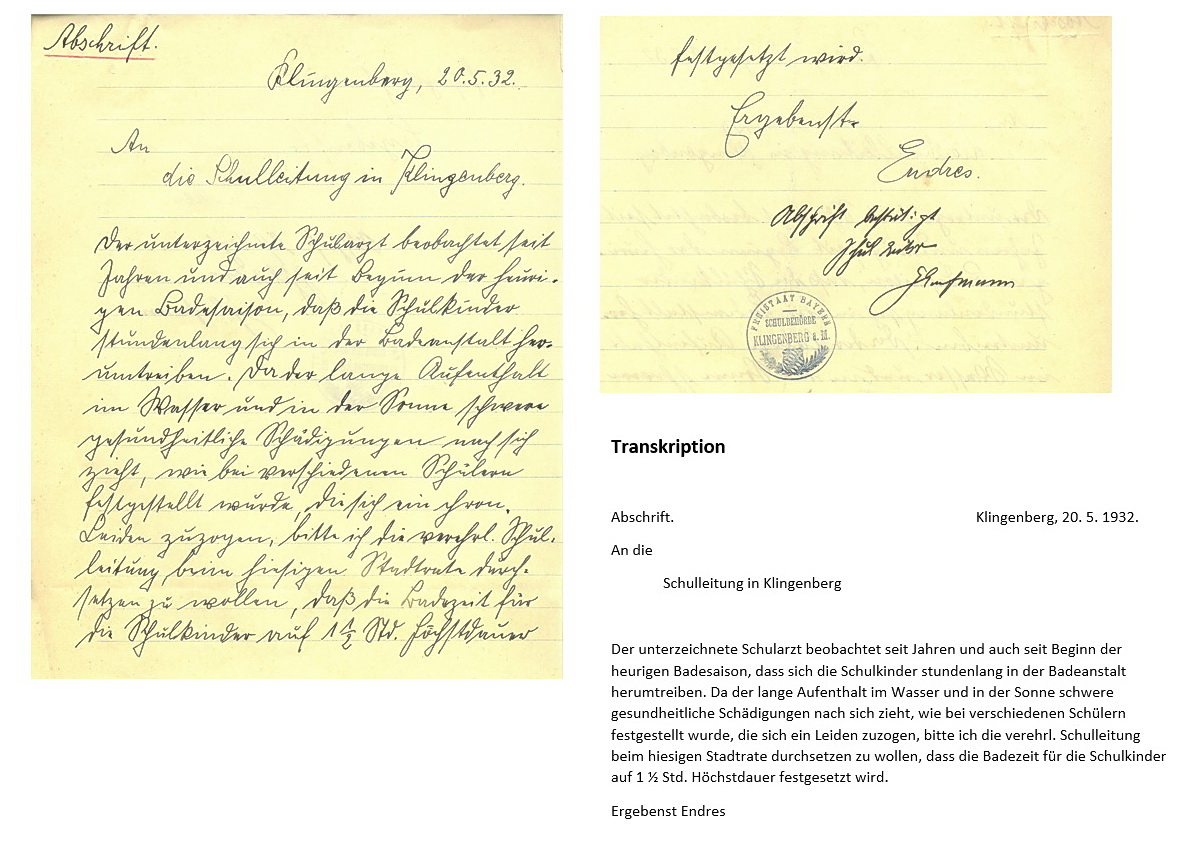 Abschrift.
Klingenberg, 20.5.32.
An
die Schulleitung in Klingenberg.
Der unterzeichnete Schularzt beobachtet seit
Jahren und auch seit Beginn der heuri-
gen Badesaison, daß die Schulkinder
stundenlang sich in der Badeanstalt her-
umtreiben. Da der lange Aufenthalt
im Wasser und in der Sonne schwere
gesundheitliche Schädigungen nach sich
zieht, wie bei verschiedenen Schülern
festgestellt wurde, die sich ein chron.
Leiden zuzogen, bitte ich die verehrl. Schul-
leitung beim hiesigen Stadtrate durch-
setzen zu wollen, daß die Badezeit für
die Schulkinder auf 1 1/2 Std. Höchstdauer
festgesetzt wird.
Ergebenst
Endres.
Abschrift bestätigt
FREISTAAT BAYERN
SCHULBEHÖRDE
KLINGENBERG a. M.
Transkription
Abschrift. Klingenberg, 20. 5. 1932.
An die
Schulleitung in Klingenberg
Der unterzeichnete Schularzt beobachtet seit Jahren und auch seit Beginn der
heurigen Badesaison, dass sich die Schulkinder stundenlang in der Badeanstalt
herumtreiben. Da der lange Aufenthalt im Wasser und in der Sonne schwere
gesundheitliche Schädigungen nach sich zieht, wie bei verschiedenen Schülern
festgestellt wurde, die sich ein Leiden zuzogen, bitte ich die verehrl. Schulleitung
beim hiesigen Stadtrate durchsetzen zu wollen, dass die Badezeit für die Schulkinder
auf 1 ½ Std. Höchstdauer festgesetzt wird.
Ergebenst Endres